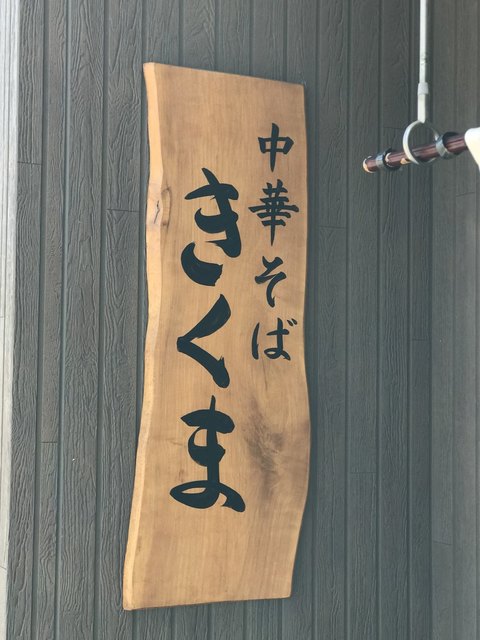 中華そば
きくま